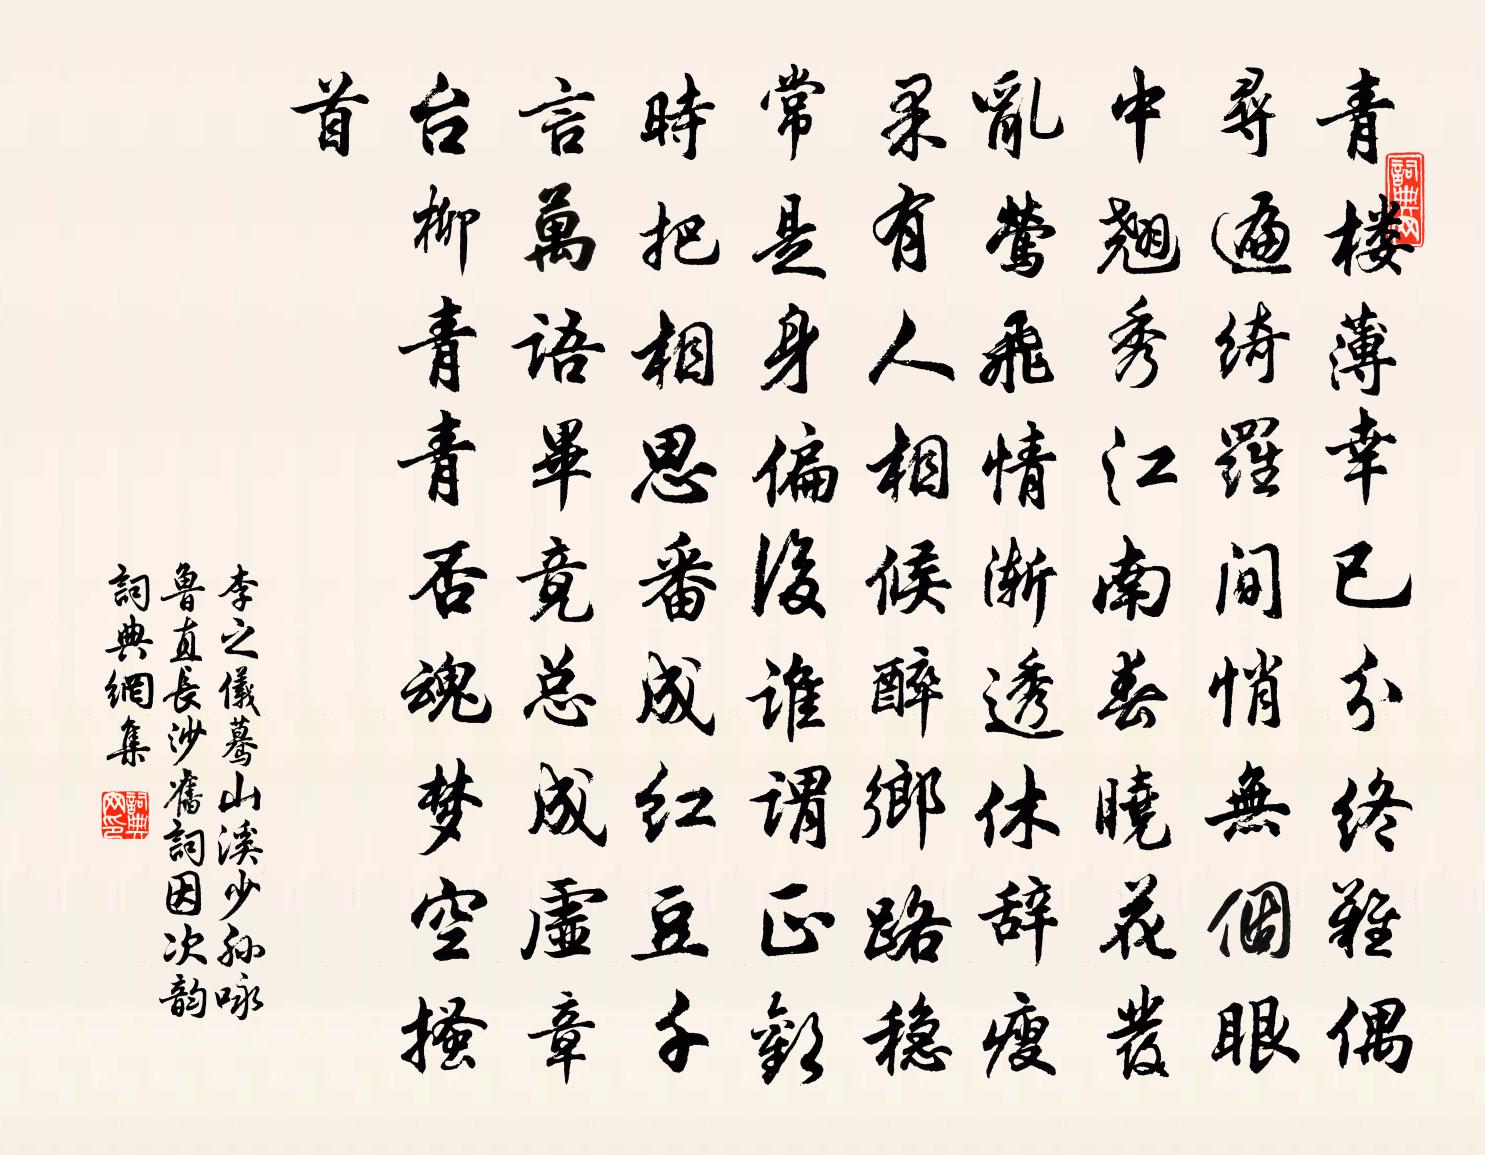 青楼薄幸已分终難偶
尋遍綺羅间悄無個眼
中翘秀江南春曉花發
亂鶯飛情渐透休辞瘦
果有人相候醉鄉路稳
常是身偏後谁謂正歡
時把相思番成红豆千
言萬語畢竟总成虚章
台柳青青否魂梦空搔
首
李之儀蓦山溪少孙咏
魯直長沙舊詞因次韵
詞典網集
詞典网
詞典网印